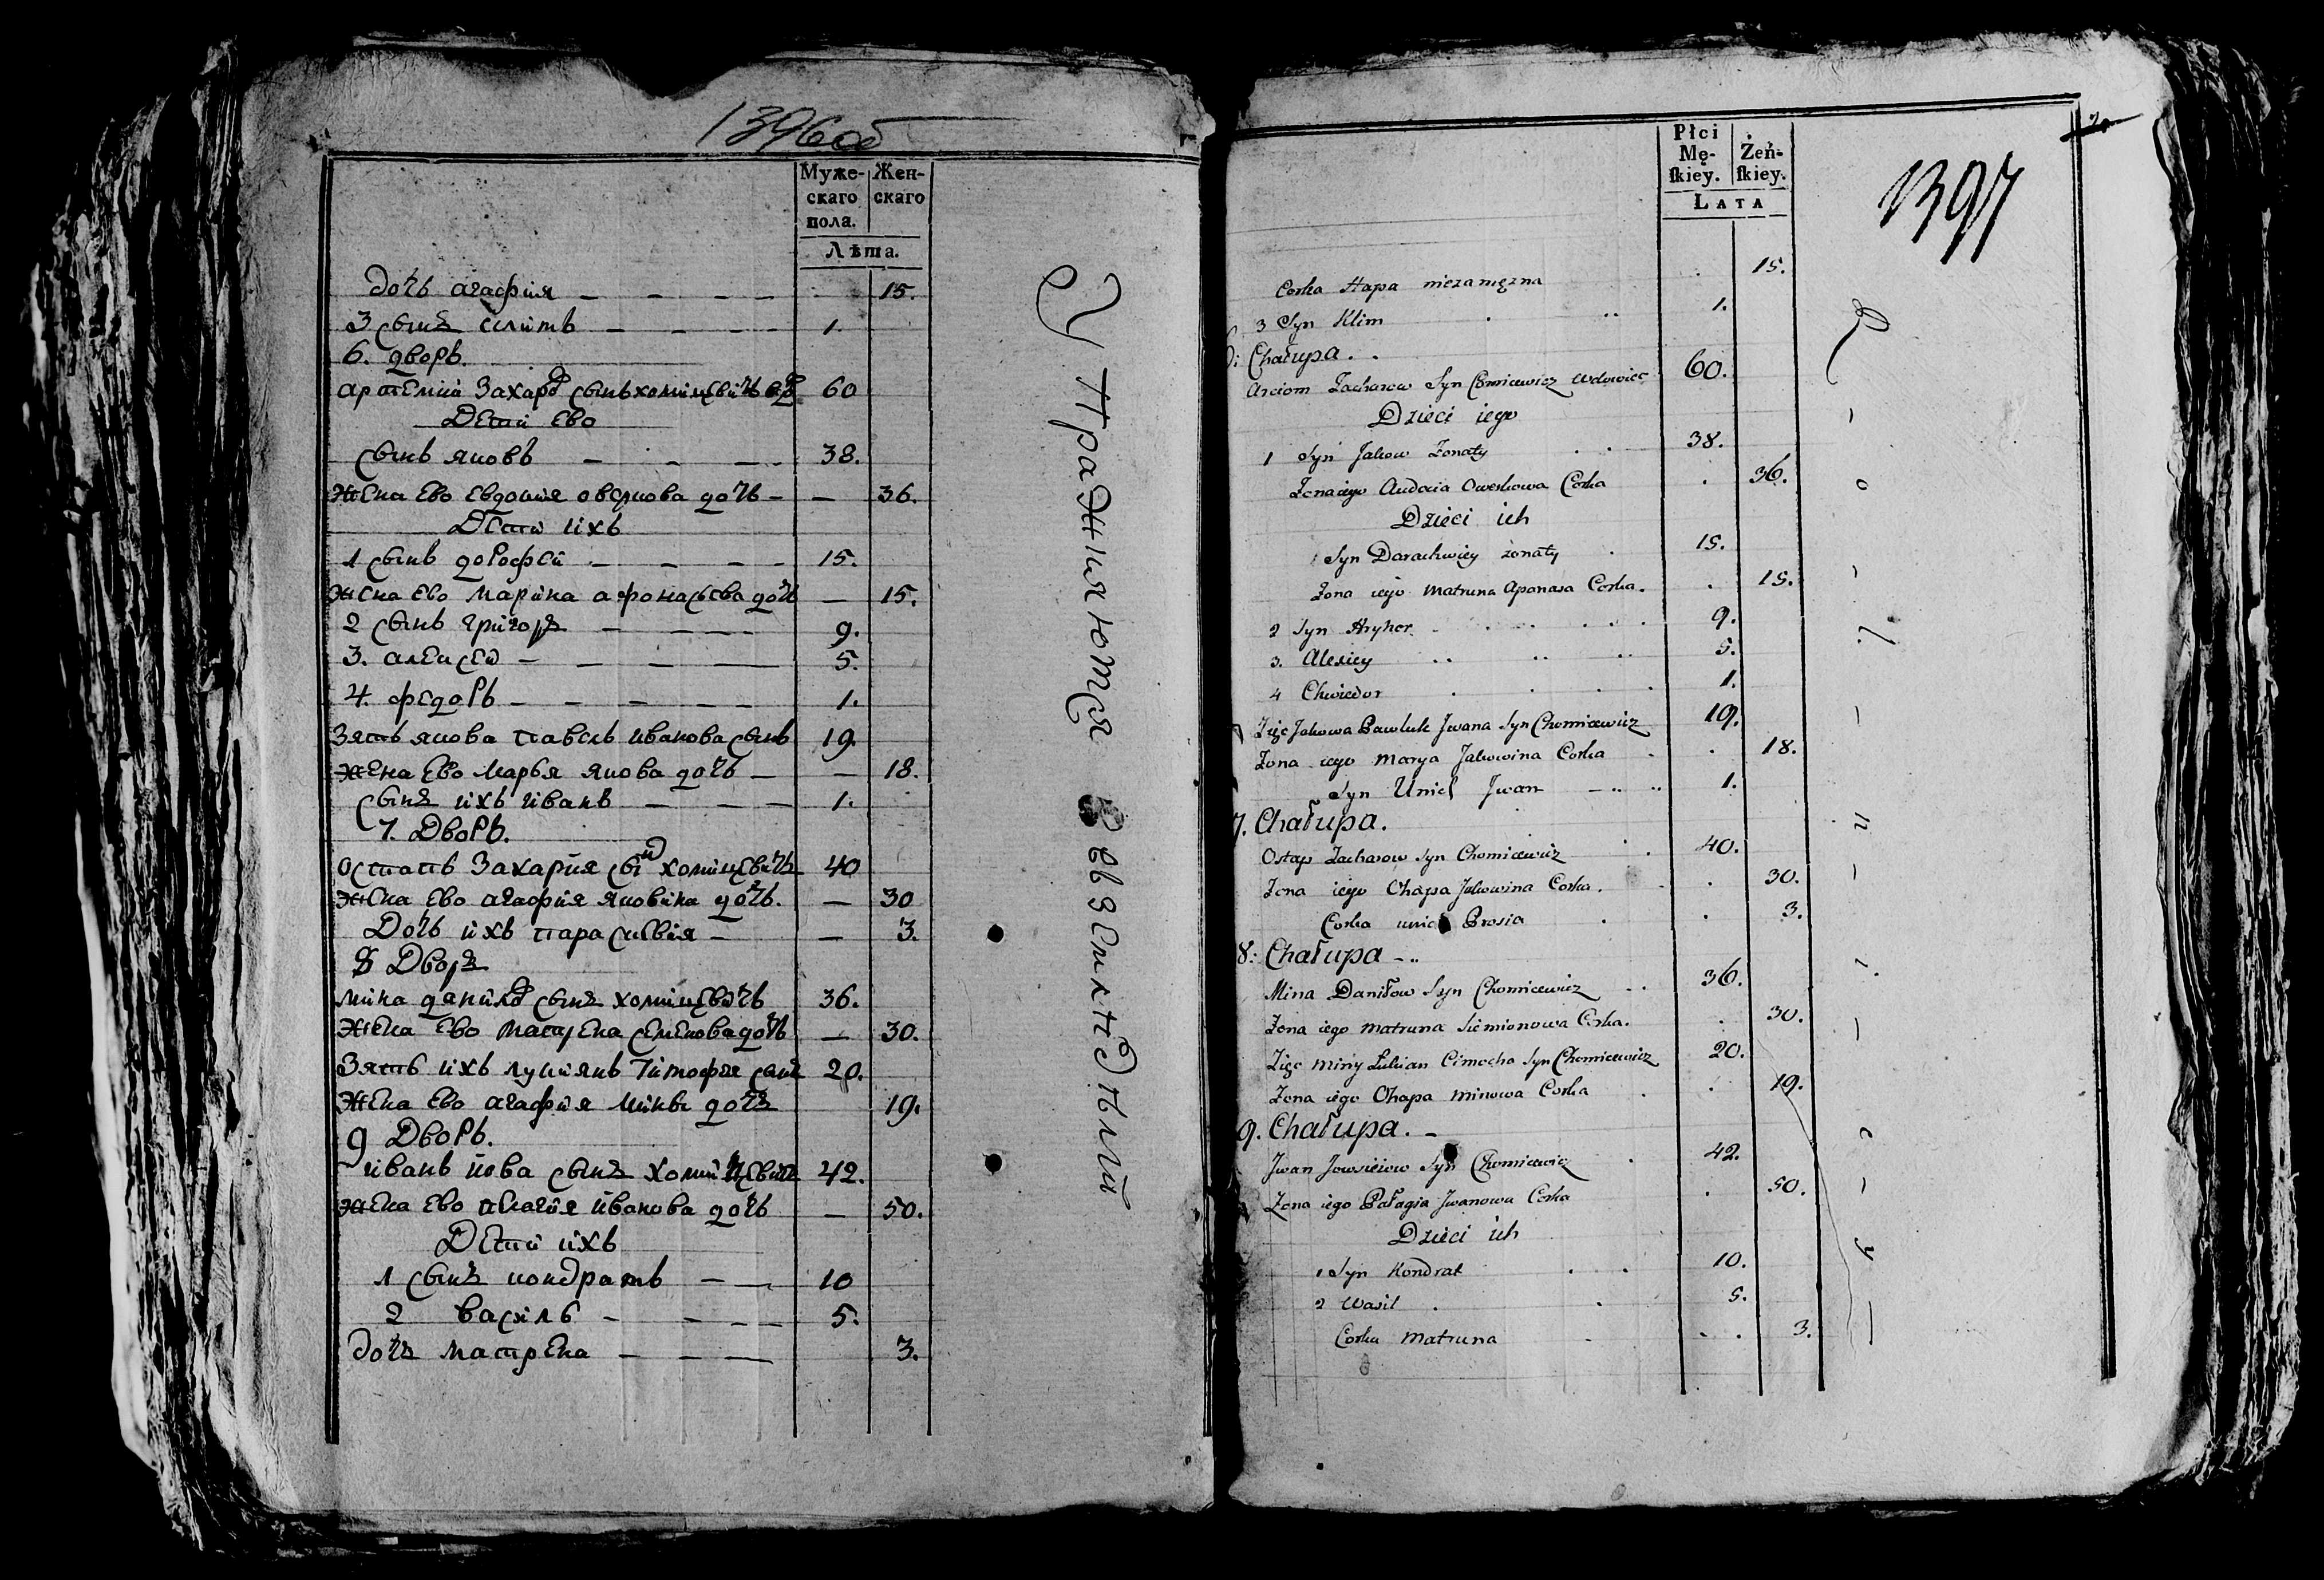 1396об
Муже-
скаго
пола.
Жен-
скаго
Лѣта.
дочь агафия — — — — 15.
3 сынъ климъ — — — — 1.
6. дворъ.
артемий Захаров сынъ хомицевичъ вд 60
Дети ево
сынъ яковъ — — — — 38.
Жена ево евдокия дочь — — 36.
Дети ихъ
1 сынъ дорофей — — — — 15.
Жена ево марина афонасьева дочь — 15.
2 сынъ григоръ — — — — 9.
3. алексей — — — — 5.
4. федоръ — — — — — 1.
Зять якова павелъ иванова сынъ 19.
Жена ево марья якова дочь — — 18.
сынъ ихъ иванъ — — — 1.
7. Дворъ.
остапъ Захария сын хомицевичъ 40
Жена ево агафия яковина дочь. — 30
Дочь ихъ параскевия — — 3.
8 Дворъ
мина данилов сынъ хомицевичъ 36.
Жена ево матрена семенова дочь — 30.
Зять ихъ лукиянъ тимофея сынъ 20.
Жена ево агафия минова дочь 19.
9 Дворъ.
иванъ йова сынъ хомицевичъ 42.
Жена ево иванова дочь — 50.
Дети ихъ
1 сынъ кондратъ — — 10
2 василь — — — — 5.
дочь матрена — — — 3.
Упражняются в земледелии
1397
Płci
Mę-
ſkiey.
Żeń-
ſkiey.
Lata
Corka Hapa niezamęzna 15.
3 Syn Klim 1.
6: Chałupa.
Arciom Zacharow Syn Chomicewicz Wdowiec 60.
Dzieci iego
1 Syn Jakow Zonaty 38.
Zona iego Audocia Corka 36.
Dzieci ich
1 Syn Darachwiey zonaty 15.
Zona iego Matruna Apanasa Corka. 15.
2 Syn Hryhor 9.
3. Alexiey 5.
4 Chwiedor 1.
Zięć Jakowa Pawluk Jwana Syn Chomicewicz 19.
Zona iego Marya Jakowina Corka 18.
Syn Unich Jwan 1.
7. Chałupa.
Ostap Zacharow Syn Chomicewicz 40.
Zona iego Ohapa Jakowina Corka. 30.
Corka unich Prosia 3.
8: Chałupa
Mina Daniłow Syn Chomicewicz 36.
Zona iego Matruna Siemionowa Corka. 30.
Zięć Miny Łukian Cimocha Syn Chomicewicz 20.
Zona iego Ohapa Minowa Corka 19.
9. Chałupa.
Jwan Syn Chomicewicz 42.
Zona iego Pałagia Jwanowa Corka 50.
Dzieci ich
1 Syn Kondrat 10.
2 Wasil 5.
Corka Matruna 3.
R - o - l - n - i - c - y -